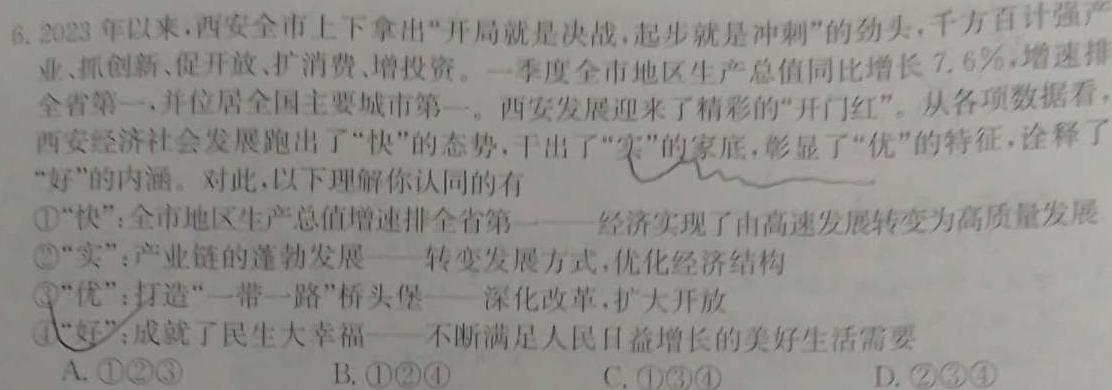 6. 2023 年以来,西安全市上下拿出“开局就是决战,起步就是冲刺”的劲头,千方百计强产
业、抓创新、促开放、扩消费、增投资。一季度全市地区生产总值同比增长 7.6%,增速排
全省第一,并位居全国主要城市第一。西安发展迎来了精彩的“开门红”。从各项数据看,
西安经济社会发展跑出了“快”的态势,干出了“实”的家底,彰显了“优”的特征,诠释了
“好”的内涵。对此,以下理解你认同的有
①“快”:全市地区生产总值增速排全省第一——经济实现了由高速发展转变为高质量发展
②“实”:产业链的蓬勃发展——转变发展方式,优化经济结构
③“优”:打造“一带一路”桥头堡——深化改革,扩大开放
④“好”:成就了民生大幸福——不断满足人民日益增长的美好生活需要
A. ①②③ B. ①②④ C. ①③④ D. ②③④